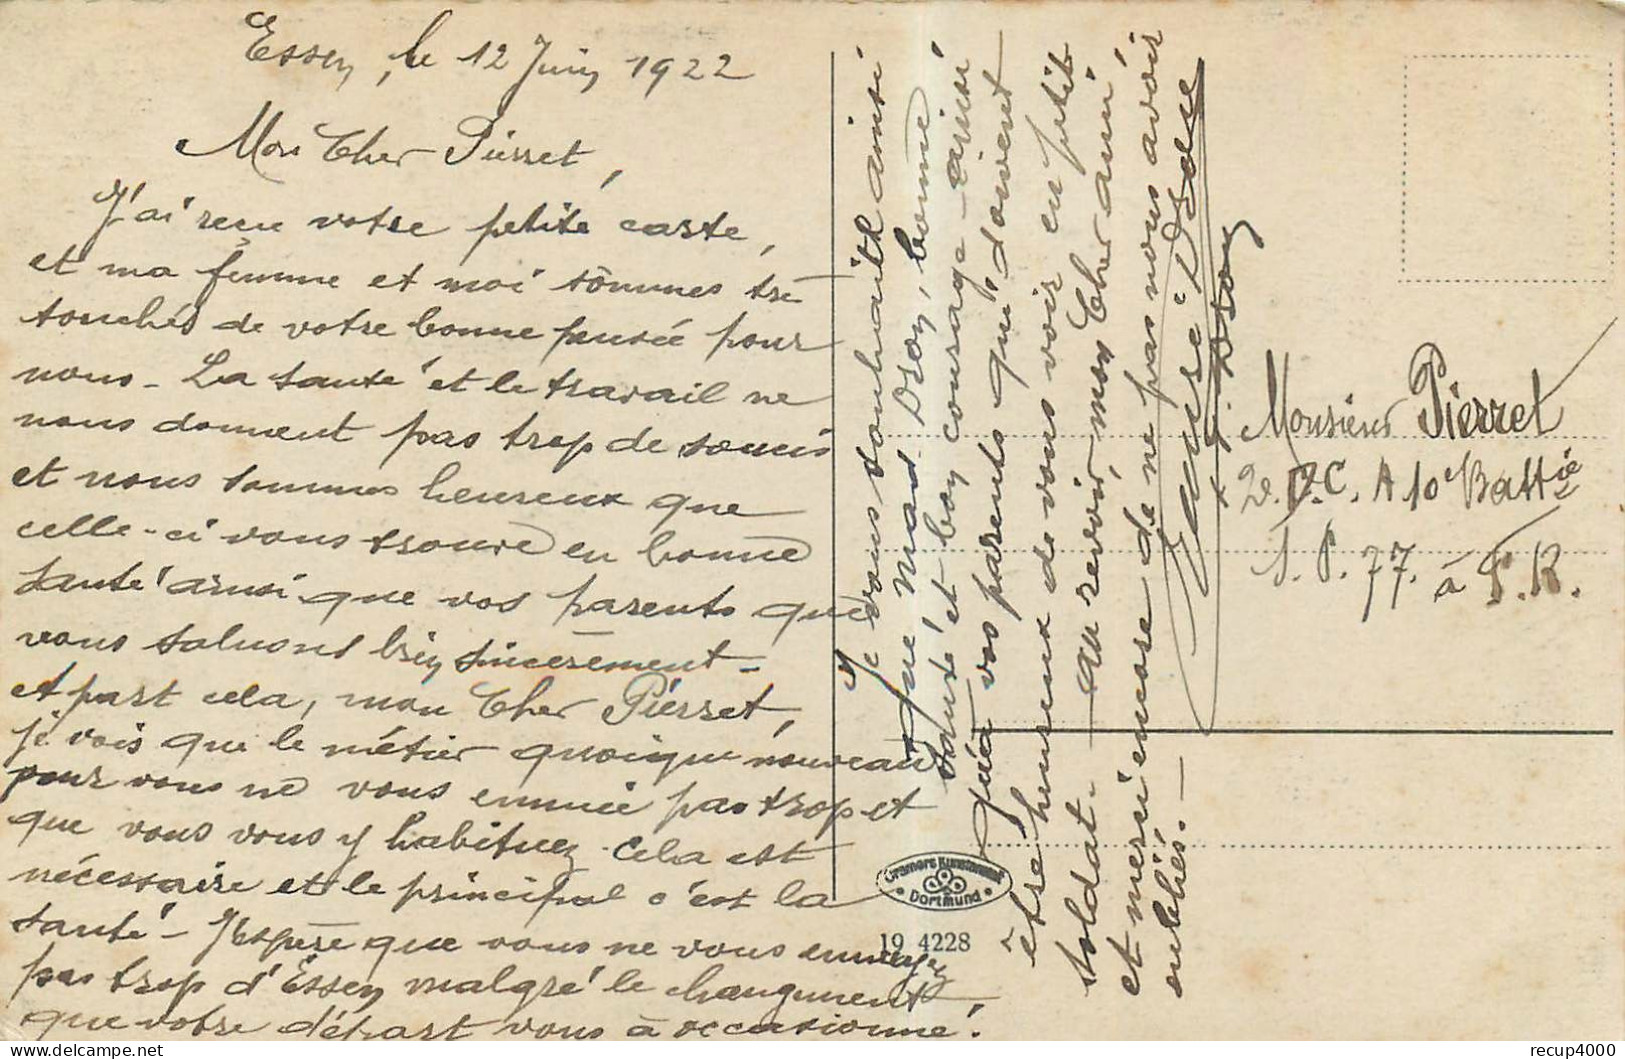 Essen, le 12 Juin 1922
Mon Cher Pierret,
J'ai reçu votre petite carte,
et ma femme et moi sommes très
touchés de votre bonne pensée pour
nous - La santé et le travail ne
nous donnent pas trop de soucis
et nous sommes heureux que
celle-ci vous trouve en bonne
santé ainsi que vos parents que
vous saluons bien sincèrement -
et part cela, mon Cher Pierret,
je vois que le métier quoique nouveau
pour vous ne vous ennuie pas trop et
que vous vous y habituez. Cela est
nécessaire et le principal c'est la
santé - J'espère que vous ne vous ennuyez
pas trop d'Essen malgré le changement
que votre départ vous a occasionné.
Je vous souhaite ainsi
que Mad. Dron, bonne
santé et bon courage - ainsi
qu'à vos parents qui doivent
être heureux de vous voir en petit
soldat. - au revoir, mon Cher ami
et merci encore de ne pas nous avoir
oubliés. -
Dron
Monsieur Pierret
D.C.A 10e Battie
S.P. 77. à F.R.
Cramers Kunstanstalt
Dortmund
19 4228
recup4000